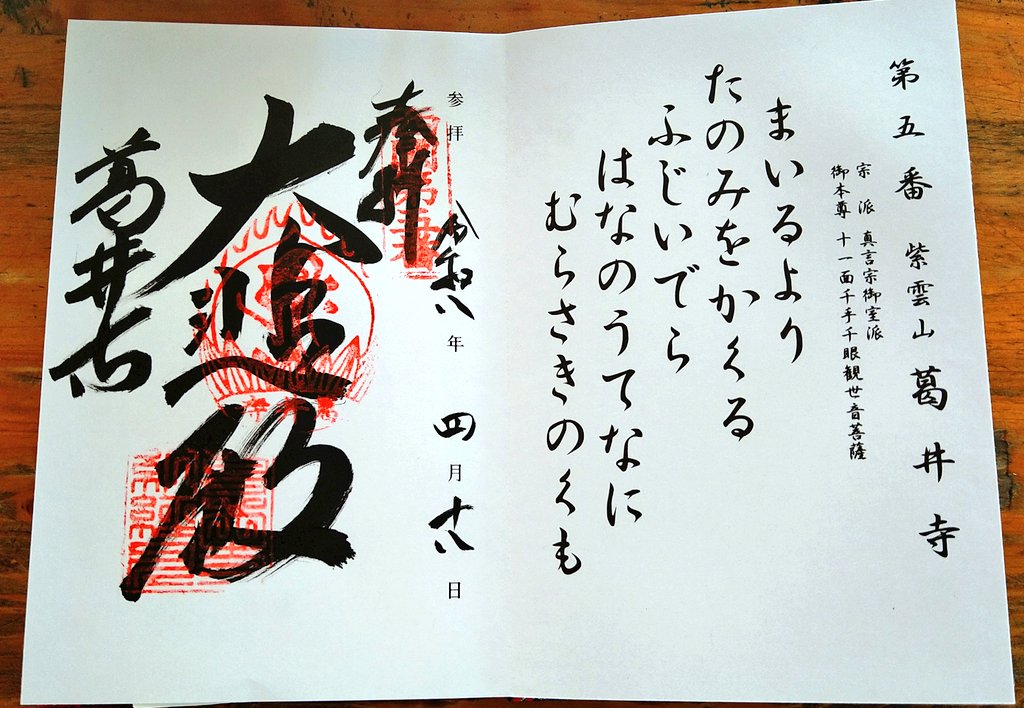 第五番 紫雲山 葛井寺
宗派 真言宗御室派
御本尊 十一面千手千眼観世音菩薩
まいるより
たのみをかくる
ふじいでら
はなのうてなに
むらさきのくも
参拝 令和八年 四月十八日
奉拝
大進殿
葛井寺